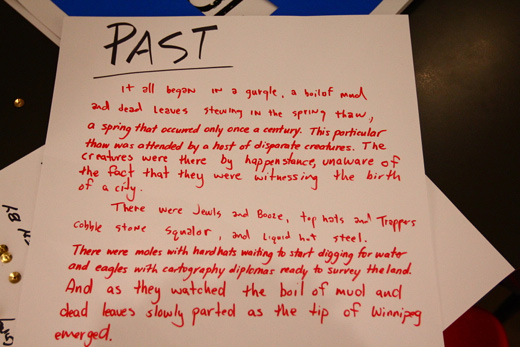 PAST
It all began in a gurgle, a boil of mud
and dead leaves stewing in the spring thaw,
a spring that occurred only once a century. This particular
thaw was attended by a host of disparate creatures. The
creatures were there by happenstance, unaware of
the fact that they were witnessing the birth
of a city.
There were Jewls and Booze, top hats and Trappers
cobble stone squalor, and liquid hot steel.
There were moles with hardhats waiting to start digging for water
and eagles with cartography diplomas ready to survey the land.
And as they watched the boil of mud and
dead leaves slowly parted as the tip of Winnipeg
emerged.